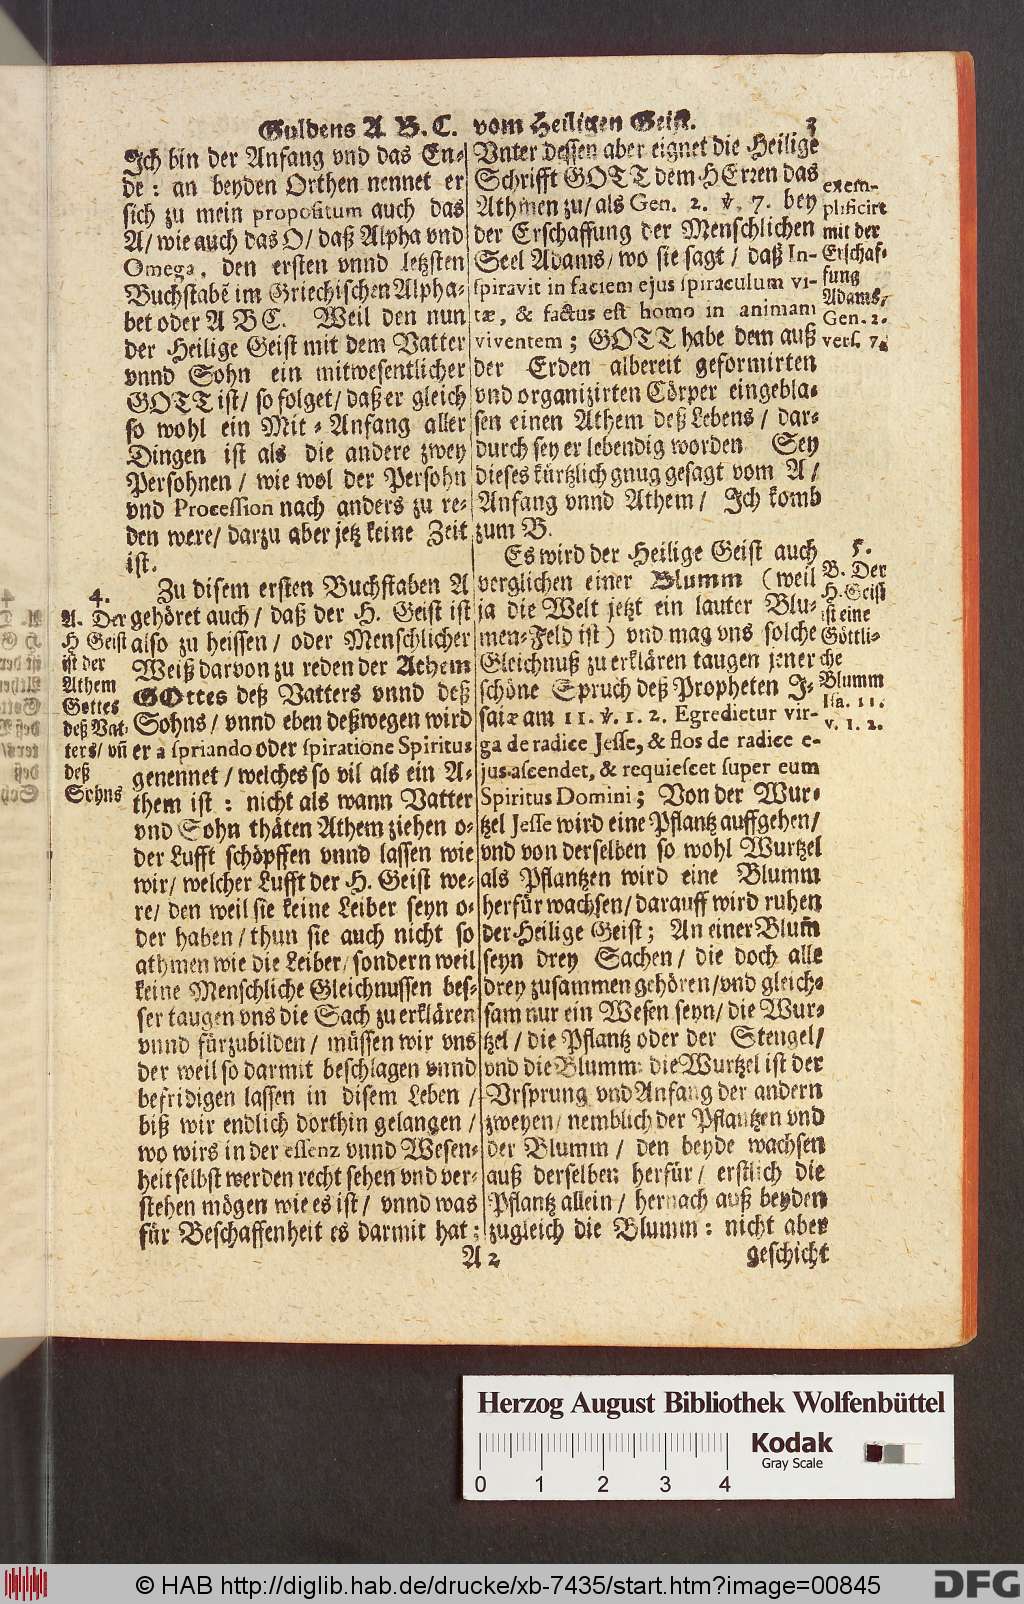 Guldens A B. C. vom Heiligen Geist. 3
Ich bin der Anfang vnd das En-
de: an beyden Orthen nennet er
sich zu mein propositum auch das
A/ wie auch das O/ daß Alpha vnd
Omega, den ersten vnnd letzsten
Buchstabē im Griechischen Alpha-
bet oder A B C. Weil den nun
der Heilige Geist mit dem Vatter
vnnd Sohn ein mitwesentlicher
GOTT ist/ so folget/ daß er gleich
so wohl ein Mit-Anfang aller
Dingen ist als die andere zwey
Persohnen/ wie wol der Persohn
vnd Procession nach anders zu re-
den were/ darzu aber jetz keine Zeit
ist.
4.
A. Der
H Geist
ist der
Athem
Gottes
deß Vat-
ters/ vn̄
deß
Sohns
Zu disem ersten Buchstaben A
gehöret auch/ daß der H. Geist ist
also zu heissen/ oder Menschlicher
Weiß darvon zu reden der Athem
GOttes deß Vatters vnnd deß
Sohns/ vnnd eben deßwegen wird
er a spriando oder spiratione Spiritus
genennet/ welches so vil als ein A-
them ist: nicht als wann Vatter
vnd Sohn thäten Athem ziehen o-
der Lufft schöpffen vnnd lassen wie
wir/ welcher Lufft der H. Geist we-
re/ den weil sie keine Leiber seyn o-
der haben/ thun sie auch nicht so
athmen wie die Leiber/ sondern weil
keine Menschliche Gleichnussen bes-
ser taugen vns die Sach zu erklären
vnnd fürzubilden/ müssen wir vns
der weil so darmit beschlagen vnnd
befridigen lassen in disem Leben/
biß wir endlich dorthin gelangen/
wo wirs in der essenz vnnd Wesen-
heit selbst werden recht sehen vnd ver-
stehen mögen wie es ist/ vnnd was
für Beschaffenheit es darmit hat;
Vnter dessen aber eignet die Heilige
Schrifft GOTT dem HErren das
Athmen zu/ als Gen. 2. ℣. 7. bey
der Erschaffung der Menschlichen
Seel Adams/ wo sie sagt/ daß In-
spiravit in faciem ejus spiraculum vi-
tæ, & factus est homo in animam
viventem; GOTT habe dem auß
der Erden albereit geformirten
vnd organizirten Cörper eingebla-
sen einen Athem deß Lebens/ dar-
durch sey er lebendig worden Sey
dieses kürtzlich gnug gesagt vom A/
Anfang vnnd Athem/ Ich komb
zum B.
exem-
plificirt
mit der
Erschaf-
fung
Adams,
Gen. 2.
vers. 7.
Es wird der Heilige Geist auch
verglichen einer Blumm (weil
ja die Welt jetzt ein lauter Blu-
men-Feld ist) vnd mag vns solche
Gleichnuß zu erklären taugen jener
schöne Spruch deß Propheten I-
saiæ am 11. ℣. 1. 2. Egredietur vir-
ga de radice Jesse, & flos de radice e-
jus ascendet, & requiescet super eum
Spiritus Domini; Von der Wur-
tzel Jesse wird eine Pflantz auffgehen/
vnd von derselben so wohl Wurtzel
als Pflantzen wird eine Blumm
herfür wachsen/ darauff wird ruhen
der Heilige Geist; An einer Blum̄
seyn drey Sachen/ die doch alle
drey zusammen gehören/ vnd gleich-
sam nur ein Wesen seyn/ die Wur-
tzel/ die Pflantz oder der Stengel/
vnd die Blumm: die Wurtzel ist der
Vrsprung vnd Anfang der andern
zweyen/ nemblich der Pflantzen vnd
der Blumm/ den beyde wachsen
auß derselben herfür/ erstlich die
Pflantz allein/ hernach auß beyden
zugleich die Blumm: nicht aber
5.
B. Der
H. Geist
ist eine
Göttli-
che
Blumm
Isa. 11.
v. 1. 2.
A 2 geschicht
Herzog August Bibliothek Wolfenbüttel
Kodak
Gray Scale
0 1 2 3 4
© HAB http://diglib.hab.de/drucke/xb-7435/start.htm?image=00845
DFG